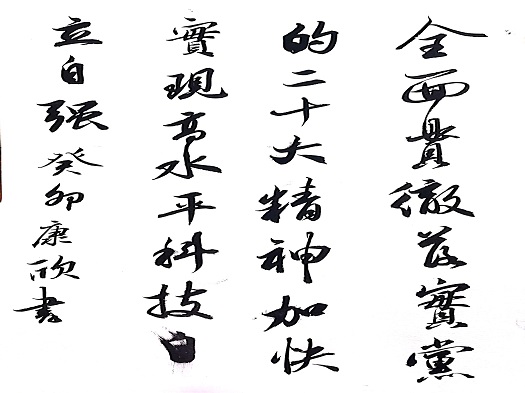 全面貫徹落實黨
的二十大精神加快
實現高水平科技自
立自强癸卯康欣書